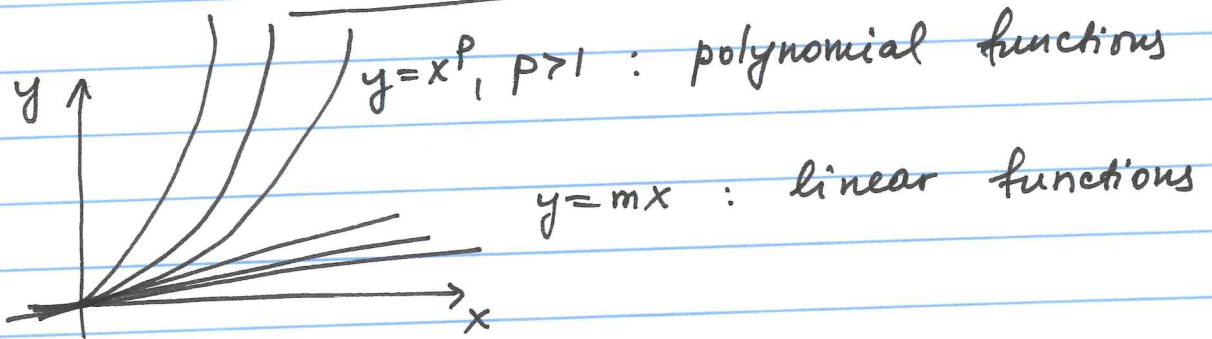 y
y=x^p, p>1 : polynomial functions
y=mx : linear functions
x